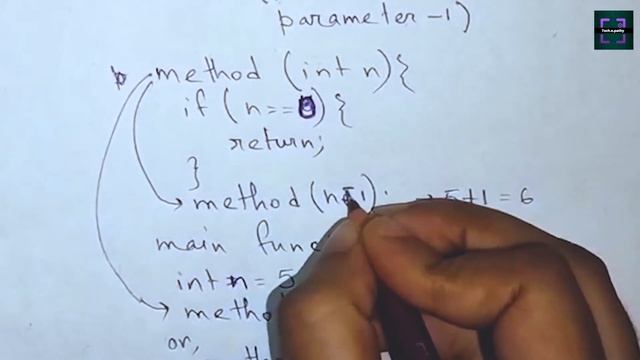 parameter -1)
method (int n){
if (n==0){
return;
}
method(n+1); → 5+1 = 6
main func
int n = 5
metho
or,
Tech.e.pathy